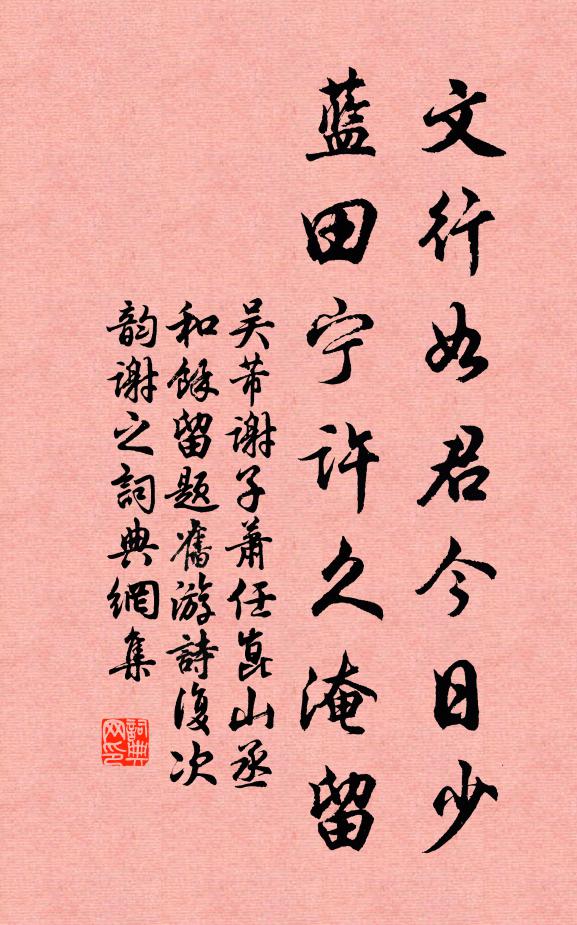 文行如君今日少
藍田宁許久淹留
吴芾谢子萧任崑山丞
和餘留题舊游詩復次
韵谢之詞典網集
詞典网印